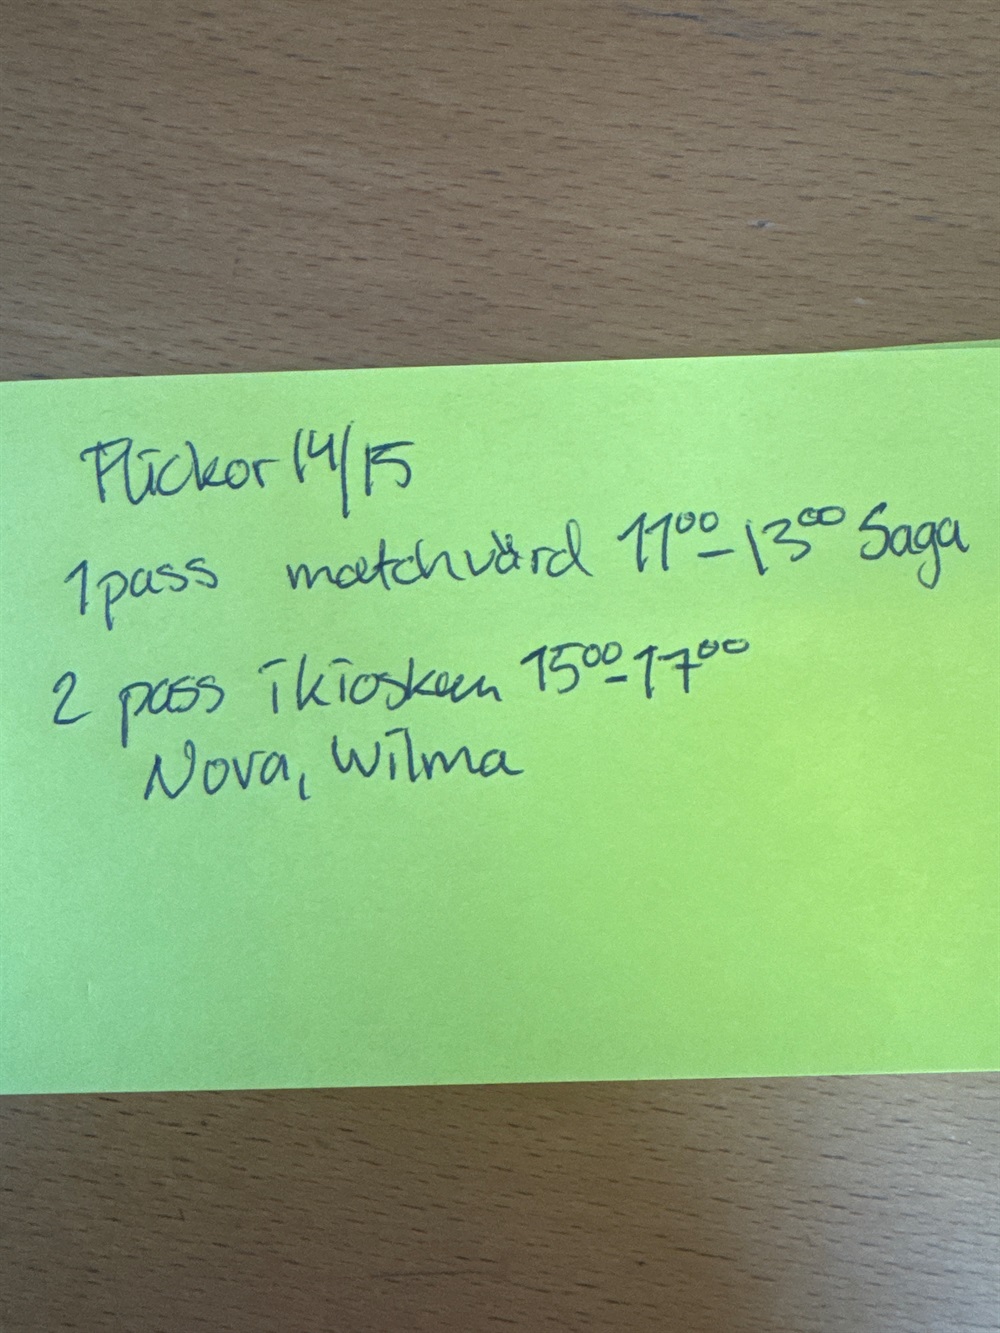 Flickor 14/15
1 pass matchvärd 11⁰⁰-13⁰⁰ Saga
2 pass i kiosken 15⁰⁰-17⁰⁰
Nova, Wilma